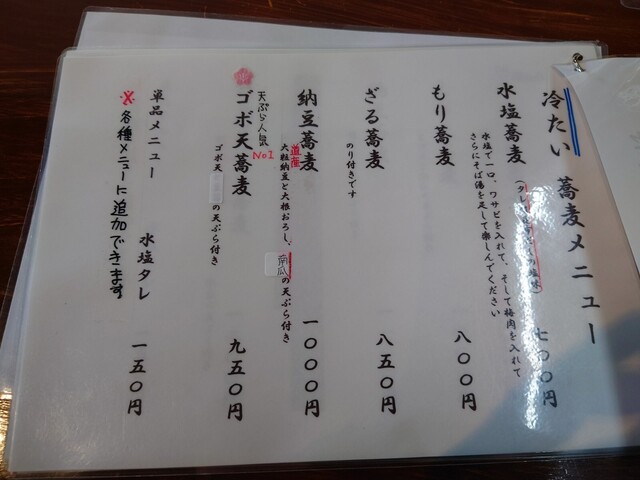 冷たい 蕎麦メニュー
水塩蕎麦 七〇〇円
水塩で一口、ワサビを入れて、そして梅肉を入れて
さらにそば湯を足して楽しんでください
もり蕎麦 八〇〇円
ざる蕎麦 八五〇円
のり付きです
納豆蕎麦 一〇〇〇円
道産
大粒納豆と大根おろし、南瓜の天ぷら付き
天ぷら人気
No1
ゴボ天蕎麦 九五〇円
ゴボ天 の天ぷら付き
単品メニュー 水塩タレ 一五〇円
※各種メニューに追加できます